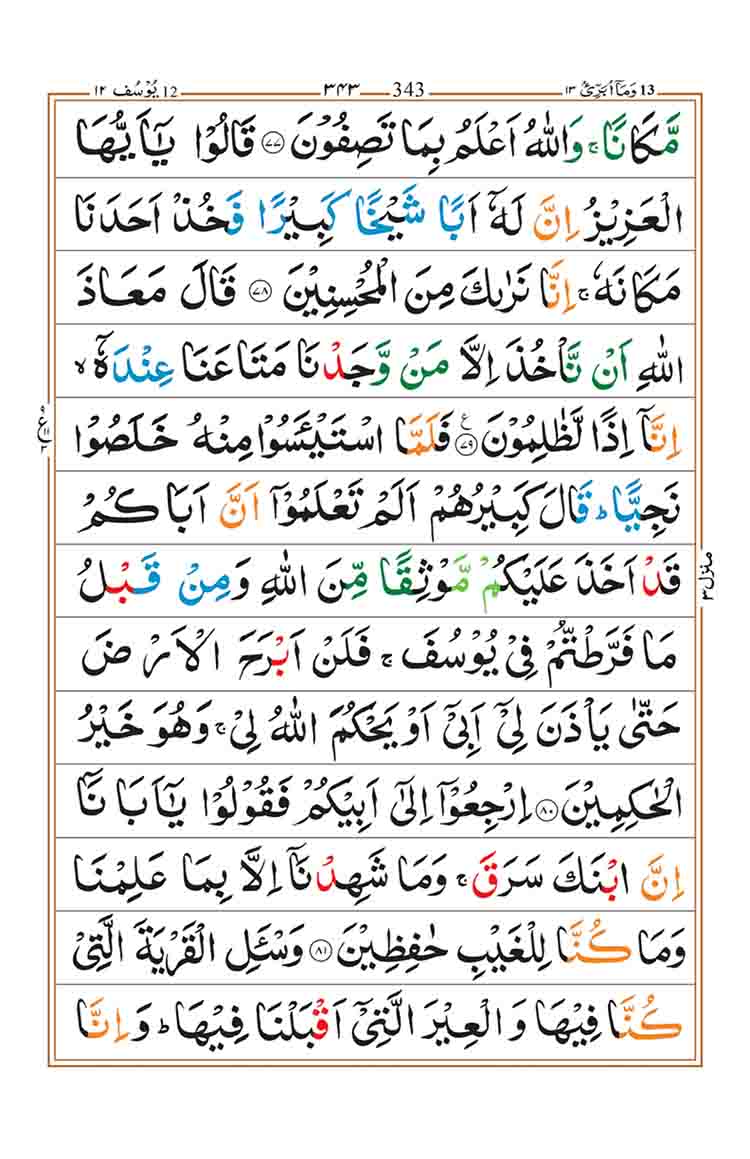 13 وَمَآ اُبَرِّئُ ١٣ 343 ٣٤٣ 12 يُوْسُف ١٢
مَّكَانًا ۚ وَاللّٰهُ اَعْلَمُ بِمَا تَصِفُوْنَ ﴿٧٧﴾ قَالُوْا يٰٓاَيُّهَا
الْعَزِيْزُ اِنَّ لَهٗٓ اَبًا شَيْخًا كَبِيْرًا فَخُذْ اَحَدَنَا
مَكَانَهٗ ۚ اِنَّا نَرٰىكَ مِنَ الْمُحْسِنِيْنَ ﴿٧٨﴾ قَالَ مَعَاذَ
اللّٰهِ اَنْ نَّاْخُذَ اِلَّا مَنْ وَّجَدْنَا مَتَاعَنَا عِنْدَهٗٓ ۙ
اِنَّآ اِذًا لَّظٰلِمُوْنَ ﴿٧٩﴾ ع فَلَمَّا اسْتَيْـَٔسُوْا مِنْهُ خَلَصُوْا
نَجِيًّا ؕ قَالَ كَبِيْرُهُمْ اَلَمْ تَعْلَمُوْٓا اَنَّ اَبَاكُمْ
قَدْ اَخَذَ عَلَيْكُمْ مَّوْثِقًا مِّنَ اللّٰهِ وَمِنْ قَبْلُ
مَا فَرَّطْتُّمْ فِيْ يُوْسُفَ ۚ فَلَنْ اَبْرَحَ الْاَرْضَ
حَتّٰى يَاْذَنَ لِيْٓ اَبِيْٓ اَوْ يَحْكُمَ اللّٰهُ لِيْ ۚ وَهُوَ خَيْرُ
الْحٰكِمِيْنَ ﴿٨٠﴾ اِرْجِعُوْٓا اِلٰٓى اَبِيْكُمْ فَقُوْلُوْا يٰٓاَبَانَآ
اِنَّ ابْنَكَ سَرَقَ ۚ وَمَا شَهِدْنَآ اِلَّا بِمَا عَلِمْنَا
وَمَا كُنَّا لِلْغَيْبِ حٰفِظِيْنَ ﴿٨١﴾ وَسْـَٔلِ الْقَرْيَةَ الَّتِيْ
كُنَّا فِيْهَا وَالْعِيْرَ الَّتِيْٓ اَقْبَلْنَا فِيْهَا ؕ وَاِنَّا
منزل ٣